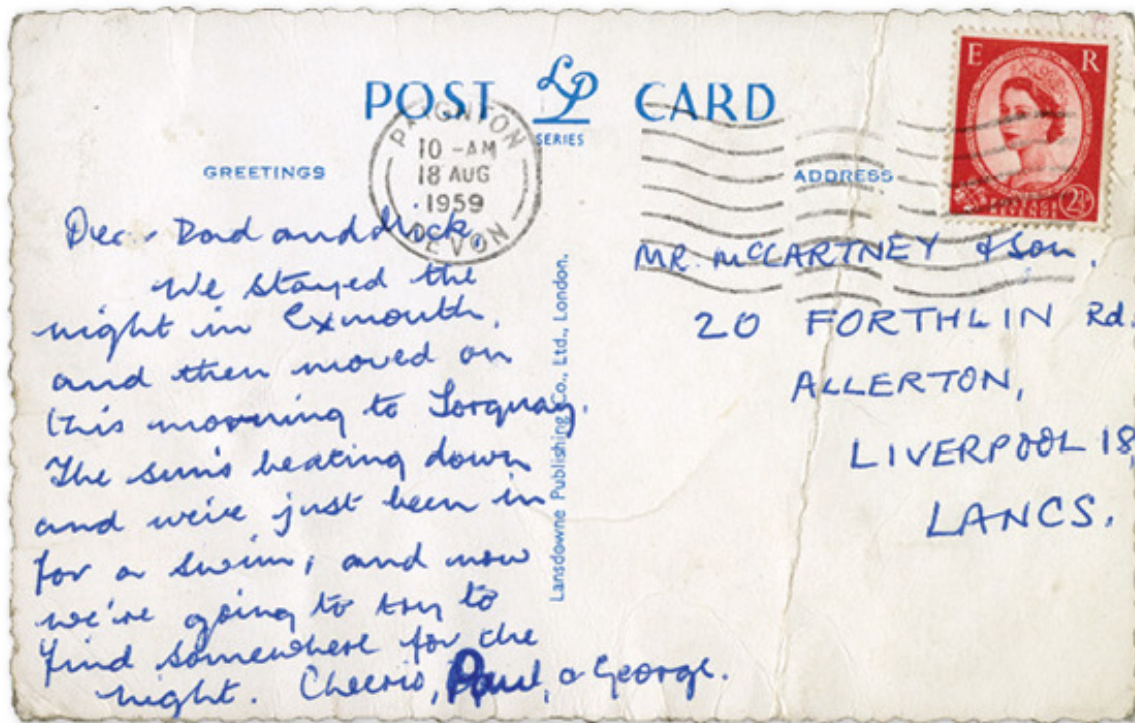 POST LP CARD
SERIES
PAIGNTON
10 -AM
18 AUG
1959
DEVON
GREETINGS
ADDRESS
E R
REVENUE
2½D
Dear Dad and Mick,
We stayed the
night in Exmouth,
and then moved on
this morning to Torquay.
The sun's beating down
and we've just been in
for a swim, and now
we're going to try to
find somewhere for the
night. Cheerio, Paul, & George.
Lansdowne Publishing Co., Ltd., London.
MR. McCARTNEY & Son,
20 FORTHLIN Rd.
ALLERTON,
LIVERPOOL 18,
LANCS.